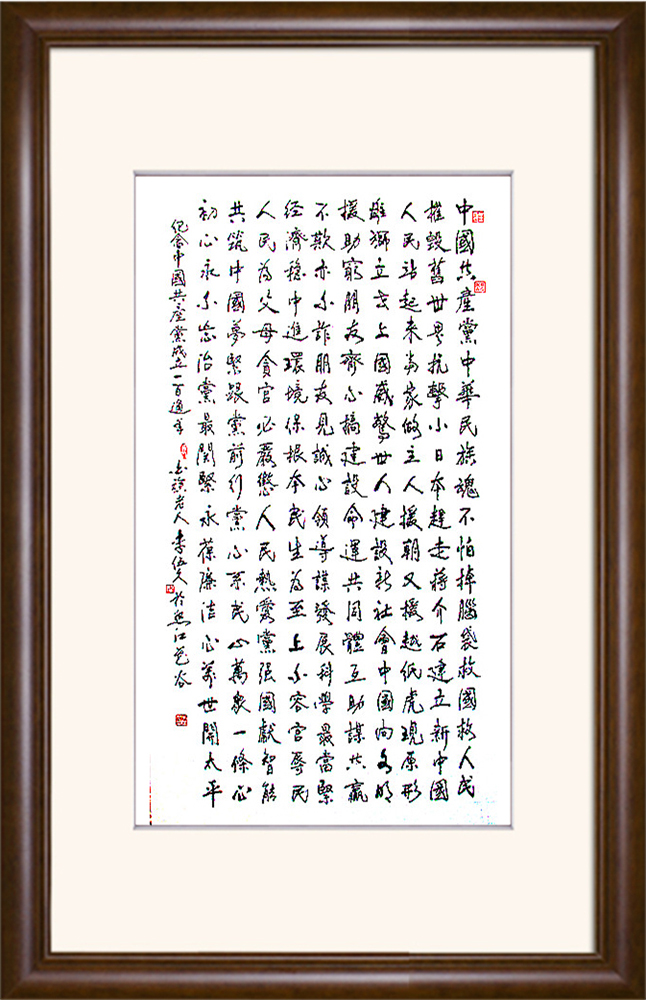 中國共產黨中華民族魂不怕掉腦袋救國救人民
摧毀舊世界抗擊小日本趕走蔣介石建立新中國
人民站起來當家做主人援朝又援越紙虎現原形
雄獅立世上國威驚世人建設新社會中國向文明
援助窮朋友齊心搞建設命運共同體互助謀共贏
不欺亦不詐朋友見誠心領導謀發展科學最當緊
經濟穩中進環境保根本民生為至上不容官辱民
人民為父母貪官必嚴懲人民熱愛黨强國獻智能
共筑中國夢緊跟黨前行黨心系民心萬衆一條心
初心永不忘治黨最関緊永葆廉洁心萬世開太平
紀念中國共產黨成立一百週年
老人李伍久於江花谷